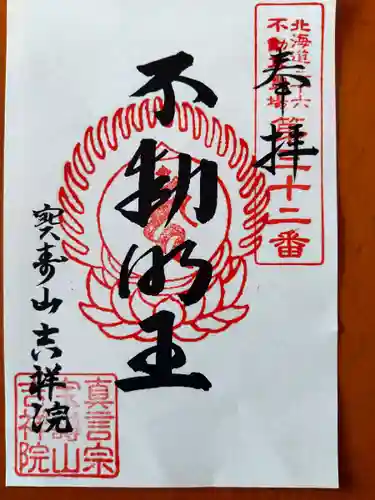 奉拝
北海道三十六
不動尊霊場
第三十二番
不動明王
寳寿山吉祥院
真言宗
宝壽山
吉祥院